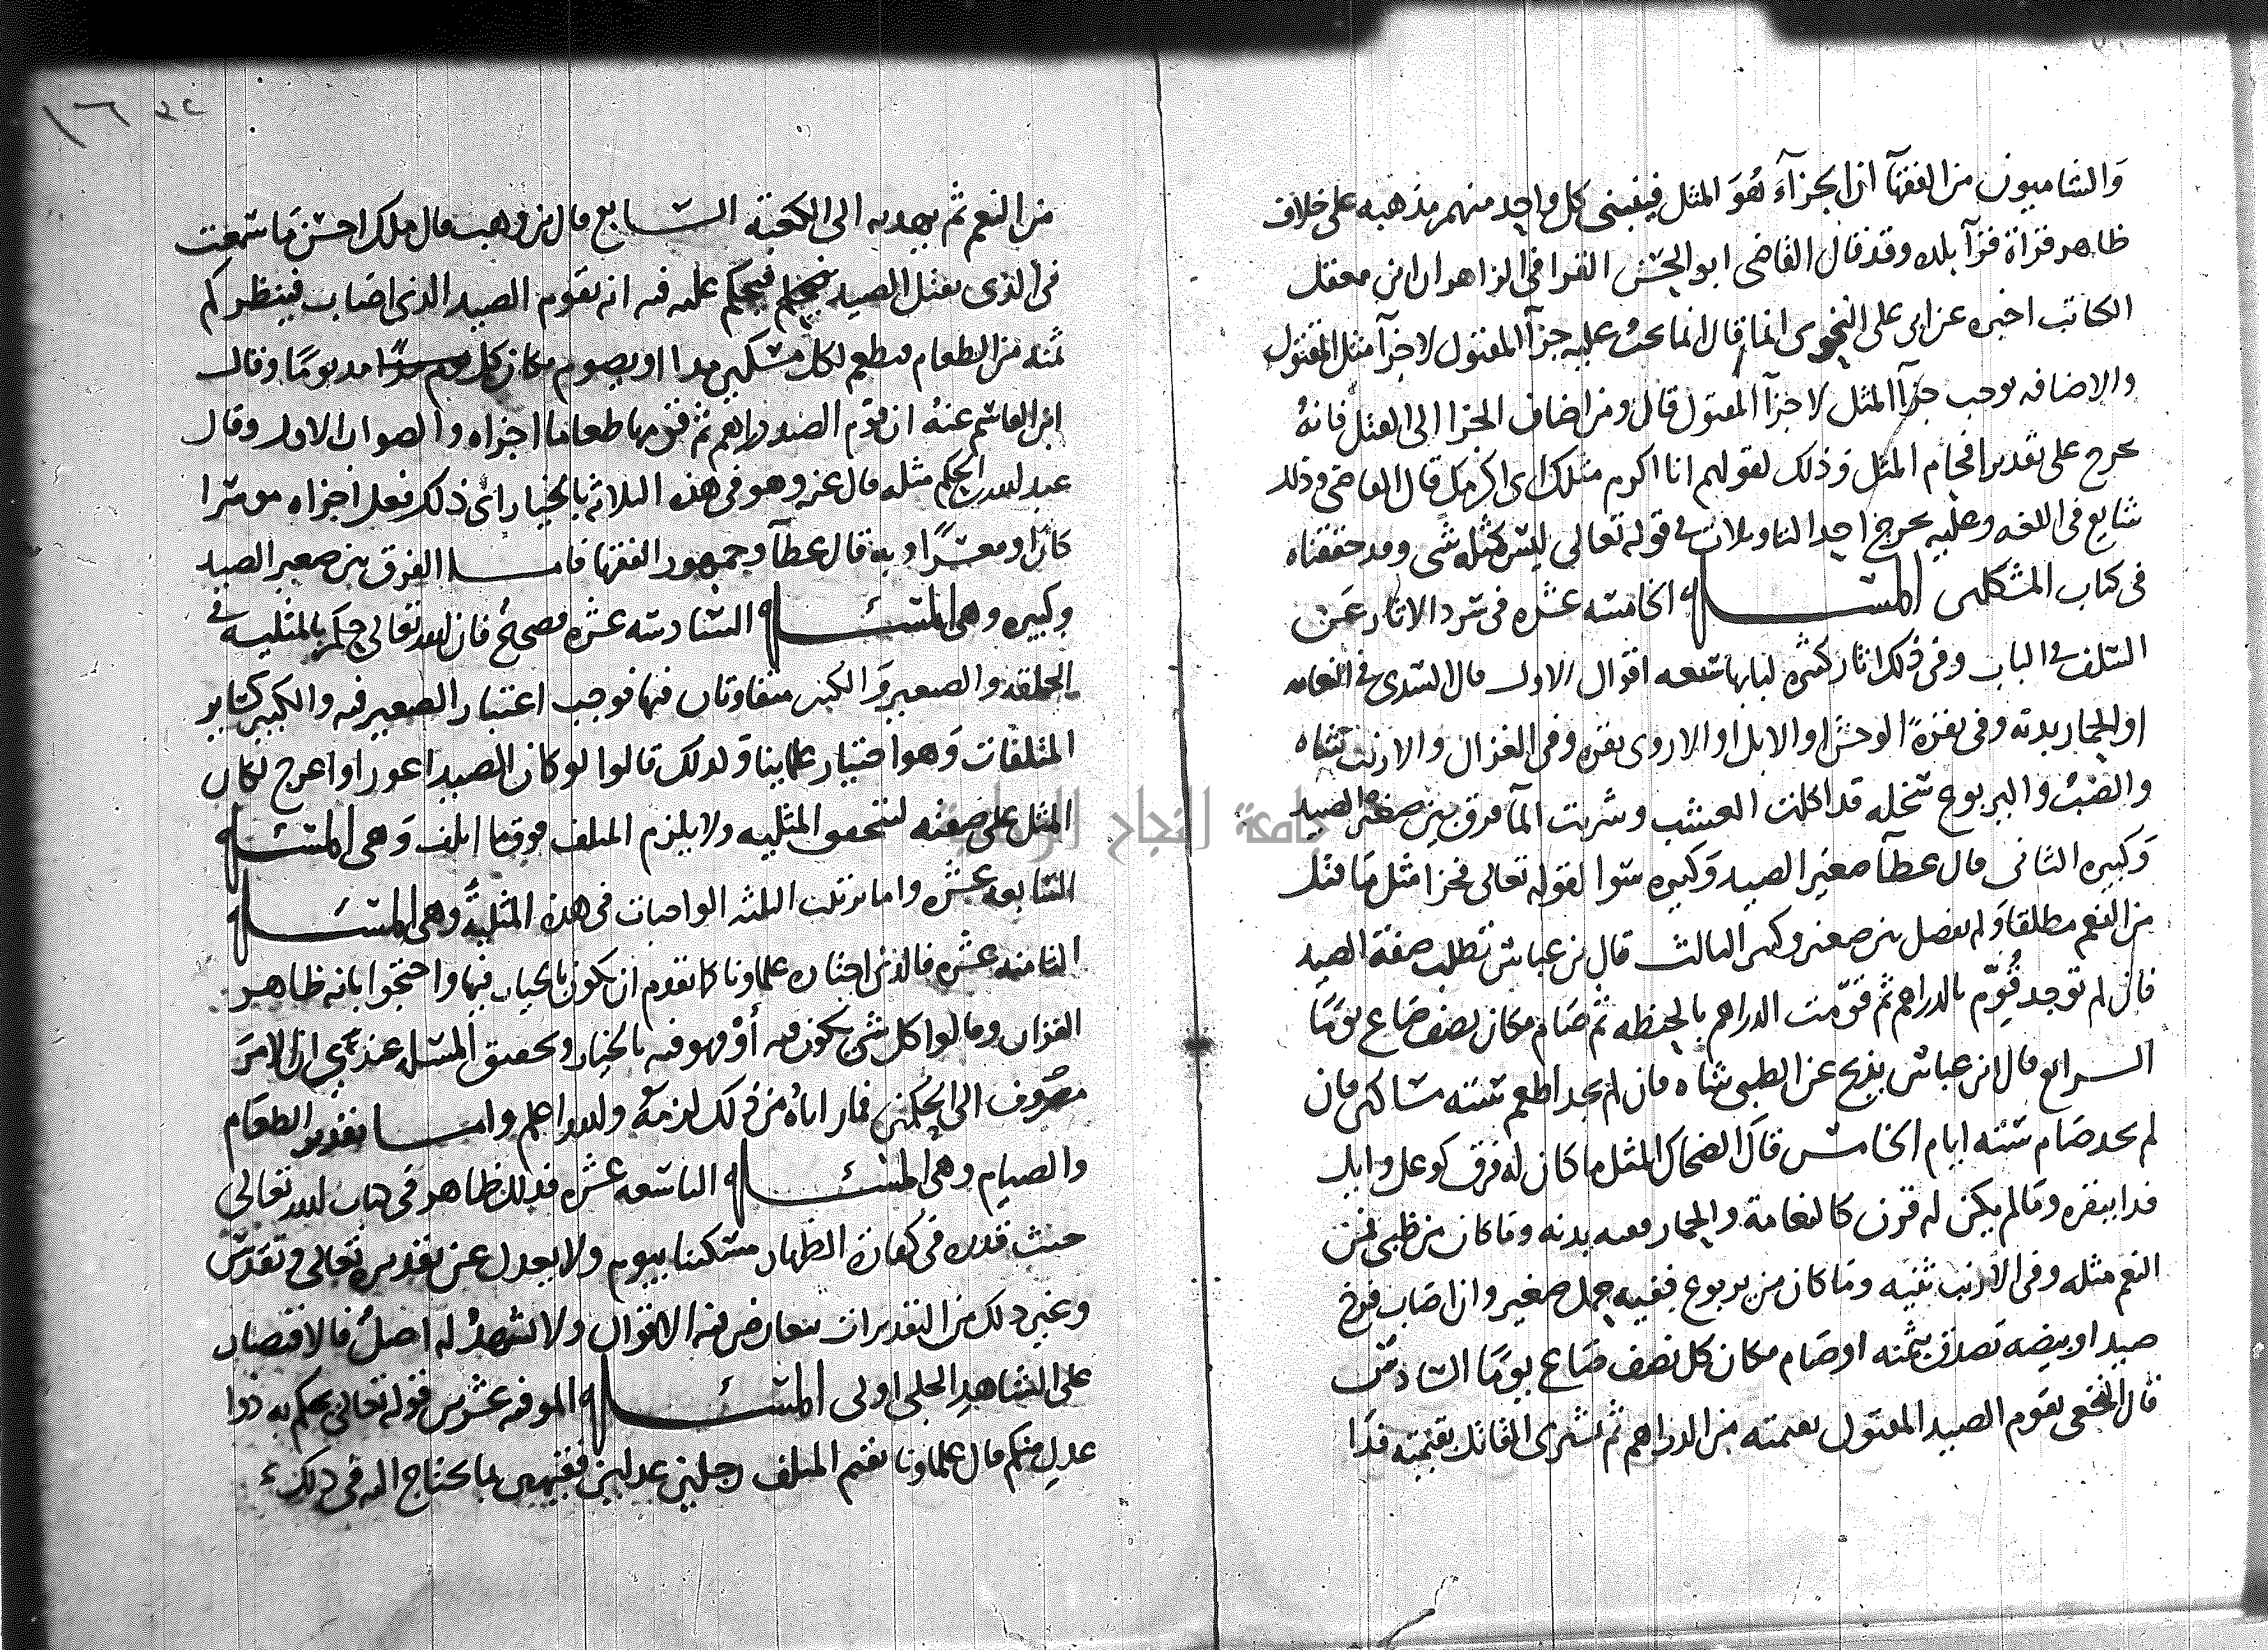 والشاميون من الفقهآ ان الجزآء هو المثل فيقتضي كل واحد منهم مذهبه على خلاف
ظاهر قراة قرآ بلده وقد قال القاضي ابو الحسن القرافي الزاهد ان ابن معقل
الكاتب اخبره عن ابي علي النحوي انما قال انما يجب عليه جزآ المقتول لا جزآ مثل المقتول
والاضافه توجب جزآ المثل لا جزآ المقتول قال ومن اضاف الجزا الى المثل فانه
يخرج على تقدير اقحام المثل وذلك لقولهم انا اكرم مثلك اي اكرمك قال القاضي وذلك
شايع في اللغه وعليه يخرج احد التاويلات في قوله تعالى ليس كمثله شي وقد حققناه
في كتاب المشكلين المسئله الخامسه عشره في سرد الاثار عن
السلف في الباب وفي ذلك اثار كثيره لبابها سبعه اقوال الاول قال السدي في النعامه
او الحمار بدنه وفي بقرة الوحش او الابل او الاروى بقره وفي الغزال والارنب شاه
والضب واليربوع سخله قد اكلت العشب وشربت المآ ففرق بين صغير الصيد
وكبيره الثاني قال عطآ صغير الصيد وكبيره سوا لقوله تعالى فجزا مثل ما قتل
من النعم مطلقا ولم يفصل بين صغير وكبير الثالث قال بن عباس تطلب صفة الصيد
فان لم توجد قُوِّم بالدراهم ثم قوّمت الدراهم بالحنطه ثم صام مكان نصف صاع يوما
الرابع قال ابن عباس يذبح عن الظبي شاه فان لم يجد اطعم ستته مساكين فان
لم يجد صام ستته ايام الخامس قال الضحاك المثل ما كان له قرن كوعل وايل
فداببقره وما لم يكن له قرن كالنعامة والحمار ففيه بدنه وما كان من ظبي فمن
النعم مثله وفي الارنب ثنيه وما كان من يربوع ففيه جمل صغير وان اصاب فرخ
صيد او بيضه تصدق بثمنه او صام مكان كل نصف صاع يوما السادس
قال النخعي يقوم الصيد المقتول بقيمته من الدراهم ثم يشتري القاتل بقيمته فدا
من النعم ثم يهديه الى الكعبه السابع قال بن وهب قال ملك احسن ما سمعت
في الذي يقتل الصيد فيحكم عليه فيه انه يقوم الصيد الذي اصاب فينظر كم
ثمنه من الطعام فيطعم لكل مسكين مدا او يصوم مكان كل مد يوما وقال
ابن القاسم عنه ان قوم الصيد دراهم ثم قومها طعاما اجزاه والصواب الاول وقال
عبد الله الحكم مثله قال عنه وهو في هذه الثلاثه بالخيار اي ذلك فعل اجزاه موسرا
كان او معسرًا وبه قال عطآ وجمهور الفقها فاما الفرق بين صغير الصيد
وكبيره وهي المسئله السادسه عشره فصحيح فان الله تعالى حكم بالمثليه في
الخلقه والصغير والكبير متفاوتان فيها فوجب اعتبار الصغير فيه والكبير كسائر
المتلفات وهو اختيار علماينا ولذلك قالوا لو كان الصيد اعور او اعرج لكان
المثل على صفته لتتحقق المثليه ولا يلزم المتلف فوق ما اتلف وهي المسئله
السابعه عشره واما ترتيب الثلثه الواجبات في هذه المثليه وهي المسئله
الثامنه عشره فالذي اختاره علماونا كما تقدم ان يكون بالخيار فيها واحتجوا بانه ظاهر
القران وقالوا كل شي يكون فيه أوْ فهو فيه بالخيار وتحقيق المسله عندي ان الامر
مصروف الى الحكمين فما راياه من ذلك لزمه والله اعلم واما تقدير الطعام
والصيام وهي المسئله التاسعه عشره فذلك ظاهر في كتاب الله تعالى
حيث قدره في كفارة الظهار مسكينا بيوم ولا يعدل عن تقديره تعالى وتقدس
وغير ذلك من التقديرات تتعارض فيه الاقوال ولا يشهد له اصل فالاقتصار
على الشاهد الجلي اولى المسئله الموفيه عشرين قوله تعالى يحكم به ذوا
عدل منكم قال علماونا يقيم المتلف رجلين عدلين فقيهين بما يحتاج اليه في ذلك
جامعة النجاح الوطنية